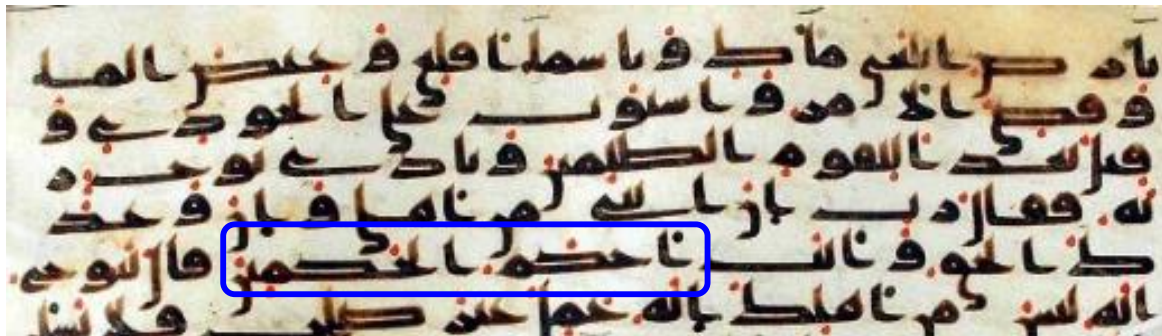 يارض ابلعي ماك ويسما اقلعي وغيض الما
وقضي الامر واستوت على الجودي و
قيل بعدا للقوم الظلمين ونادى نوح ر
به فقال رب ان ابني من اهلي وان وعد
ك الحق وانت احكم الحكمين قال ينوح
انه ليس من اهلك انه عمل غير صلح فلا تسلن